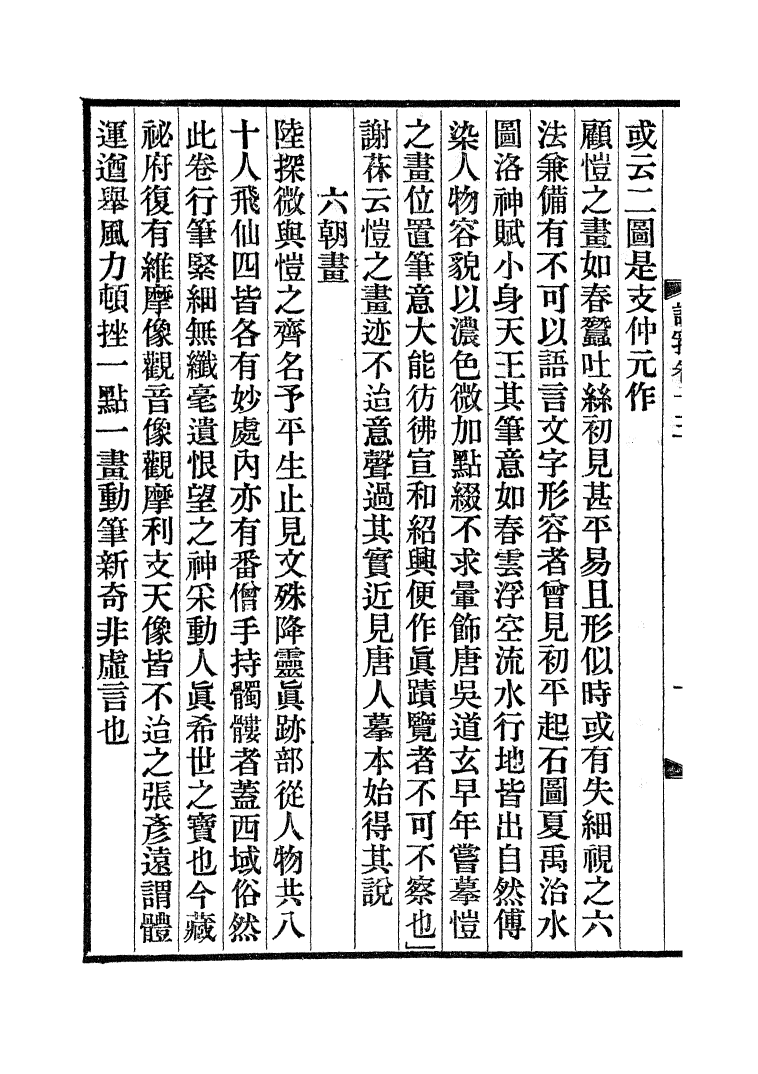 或云二圖是支仲元作
顧愷之畫如春蠶吐絲初見甚平易且形似時或有失細視之六
法兼備有不可以語言文字形容者曾見初平起石圖夏禹治水
圖洛神賦小身天王其筆意如春雲浮空流水行地皆出自然傅
染人物容貌以濃色微加點綴不求暈飾唐吳道玄早年嘗摹愷
之畫位置筆意大能彷彿宣和紹興便作眞蹟覽者不可不察也」
謝蓀云愷之畫迹不迨意聲過其實近見唐人摹本始得其說
六朝畫
陸探微與愷之齊名予平生止見文殊降靈眞跡部從人物共八
十人飛仙四皆各有妙處內亦有番僧手持髑髏者蓋西域俗然
此卷行筆緊細無纖毫遺恨望之神采動人眞希世之寶也今藏
祕府復有維摩像觀音像觀摩利支天像皆不迨之張彥遠謂體
運遒舉風力頓挫一點一畫動筆新奇非虛言也